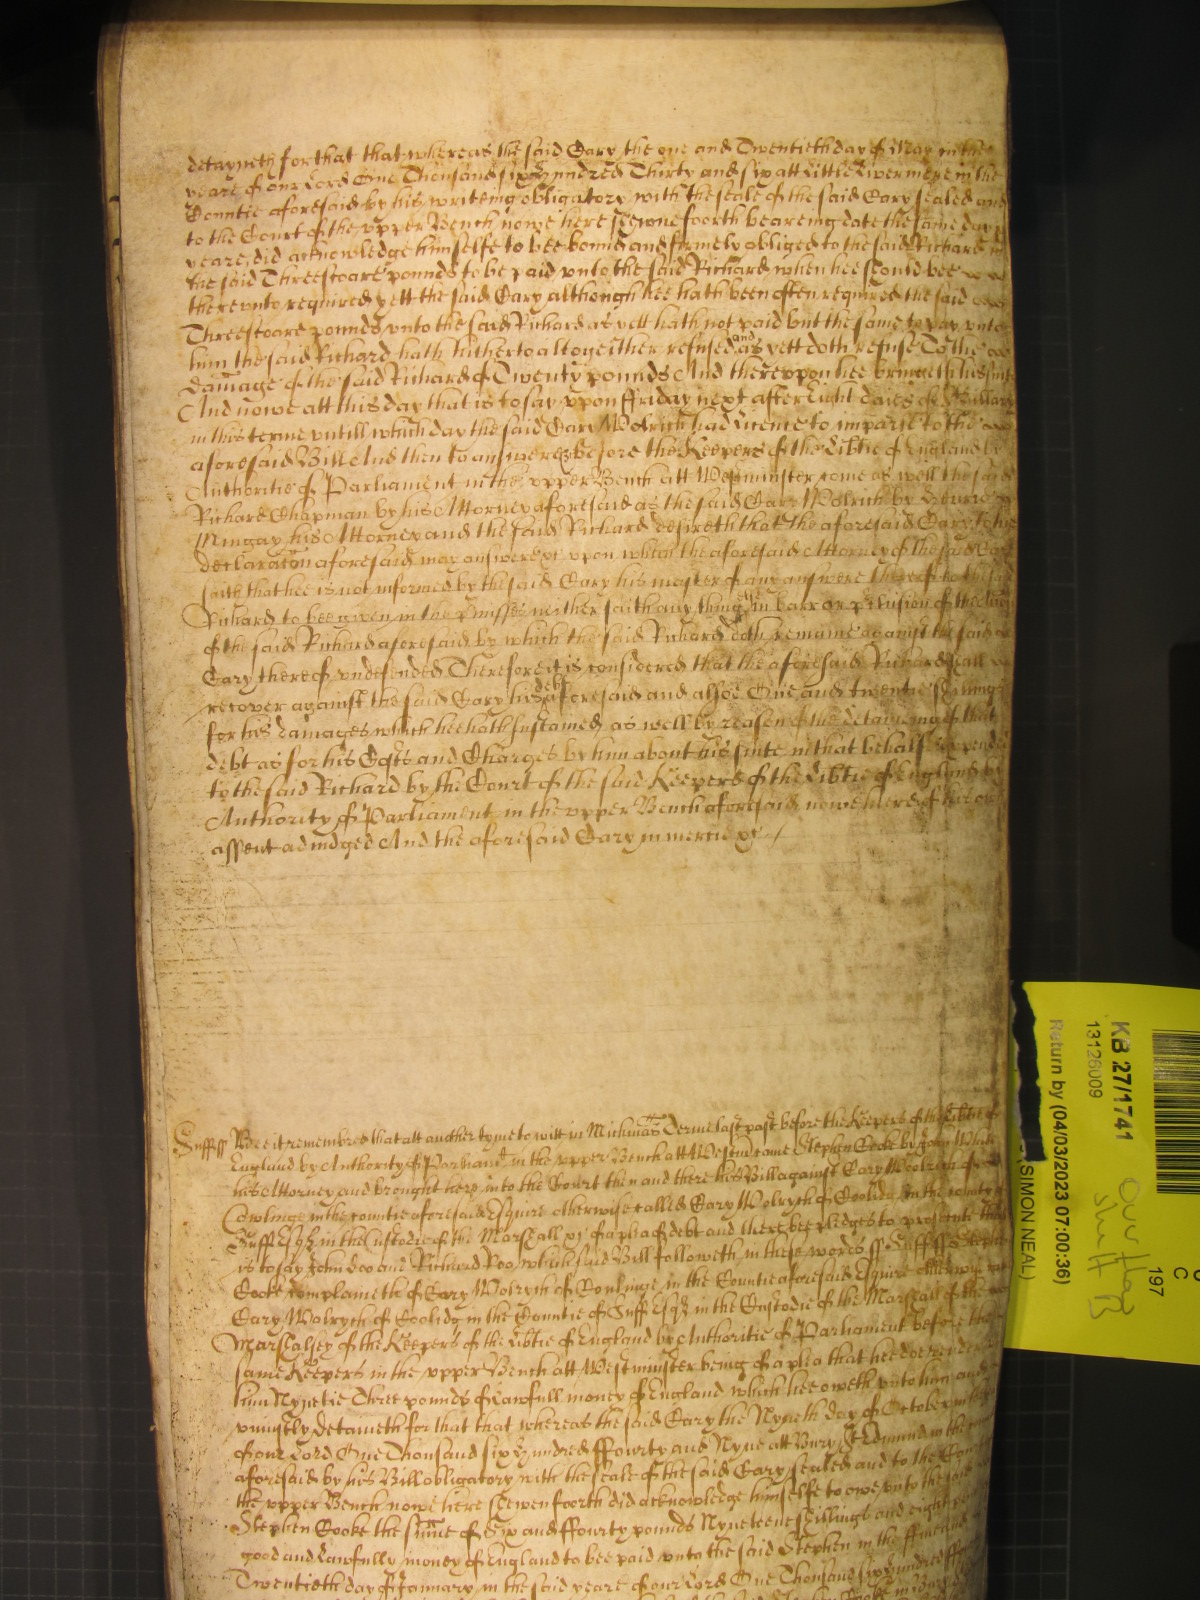 detayneth for that that whereas the said Cary the one and Twentieth day of May in the
yeare of our Lord One Thousand six hundred Thirty and six att Little Livermere in the
Countie aforesaid by his writeing obligatory with the seale of the said Cary sealed and
to the Court of the upper Bench nowe here shewne foorth beareing date the same day
yeare did acknowledge himselfe to bee bound and firmely obliged to the said Richard in
the said Threescoare pounds to be paid unto the said Richard when hee should bee
thereunto required yett the said Cary although hee hath been often required the said
Threescoare pounds unto the said Richard as yett hath not paid but the same to pay unto
him the said Richard hath hitherto altogeither refused and as yett doth refuse To the
damage of the said Richard of Twenty pounds And thereupon hee bringeth his suite
And nowe att this day that is to say upon ffriday next after Eight daies of St Hillary
in this terme untill which day the said Cary Wolrich had Licence to imparle to the
aforesaid Bill And then to answere &c before the Keepers of the Libtie of England by
Authoritie of Parliament in the upper Bench att Westminster come as well the said
Richard Chapman by his Attorney aforesaid as the said Cary Wolrich by
Mingay his Attorney and the said Richard desireth that the aforesaid Cary to his
declaracon aforesaid may answere &c upon which the aforesaid Attorney of the said Cary
saith that hee is not informed by the said Cary his master of any answere thereof to the said
Richard to bee given in the pmisses neither saith any thing in barr or pclusion of the
of the said Richard aforesaid by which the said Richard doth remaine against the said
Cary thereof undefended Therefore it is considered that the aforesaid Richard shall
recover against the said Cary his debt aforesaid and alsoe One and twentie shillings
for his damages which hee hath sustained as well by reason of the detaineing of that
debt as for his Costs and Charges by him about his suite in that behalf expended
to the said Richard by the Court of the said Keepers of the Libtie of England by
Authority of Parliament in the upper Bench aforesaid nowe here of his owne
assent adiudged And the aforesaid Cary in mercie &c
Suff ss Bee it remembred that att another tyme to witt in Michmas Terme last past before the Keepers of the Libtie of
England by Authority of Parliamt in the upper Bench att Westm came Stephen Cooke by John White
his Attorney and brought here into the Court then and there his Bill against Cary Woolrych of
Cowlinge in the countie aforesaid Esquire otherwise called Cary Wolrych of Coolidg in the county of
Suff Esqr in the Custodie of the Marshall &c of a plea of debt and there bee pledges to prosecute that
is to say John Doo and Richard Roo which said Bill followeth in these words ss Suff ss Stephen
Cooke complaineth of Cary Wolrych of Coulinge in the Countie aforesaid Esquire otherwise
Cary Wolrych of Coolidg in the Countie of Suff Esqr in the Custodie of the Marshall of the
Marshalsey of the Keepers of the Libtie of England by Authoritie of Parliament before the
same Keepers in the upper Bench att Westminster being of a plea that hee doe render to
him Nynetie Three pounds of Lawfull money of England which hee oweth unto him and
uniustly detaineth for that that whereas the said Cary the Nyneth day of October in the
of our Lord One Thousand six hundred ffourty and Nyne att Bury St Edmund in the
aforesaid by his Bill obligatory with the seale of the said Cary sealed and to the Court
the upper Bench nowe here shewen foorth did acknowledge himselfe to owe unto the said
Stephen Cooke the sume of Six and ffourty pounds Nyneteene shillings and eight pence
good and Lawfully money of England to bee paid unto the said Stephen in the
Twentieth day of January in the said yeare of our Lord One Thousand six hundred
KB 27/1741
13126009
Return by (04/03/2023 07:00:36)
(SIMON NEAL)
197
C